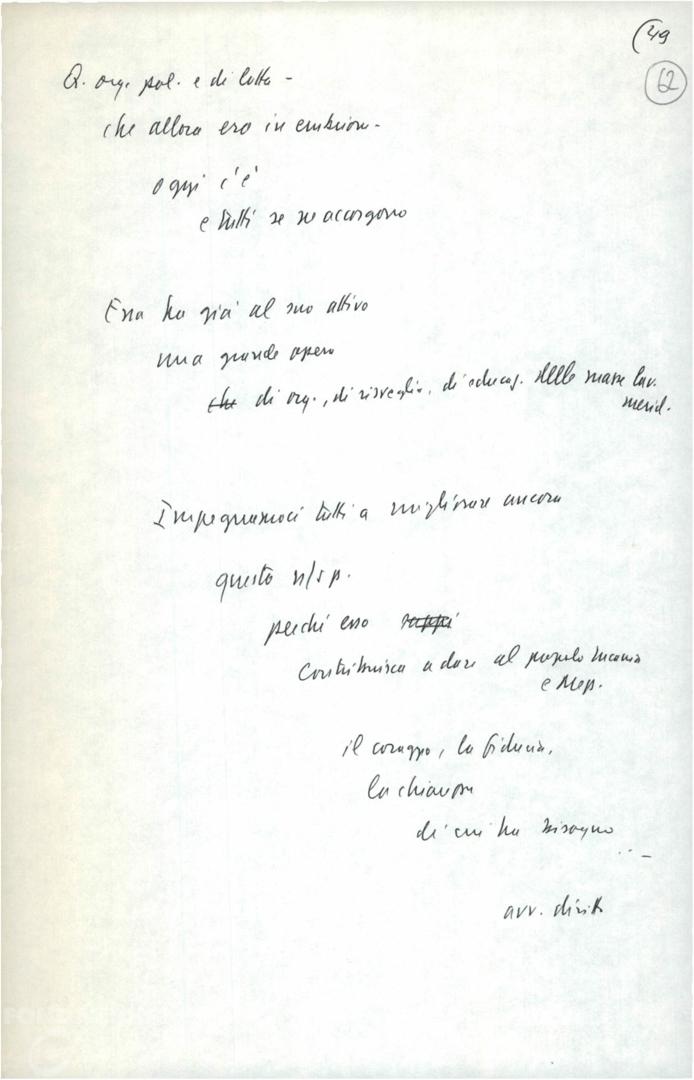 (49
62
Q. org. pol. e di lotta -
che allora era in embrion-
oggi c'è
e tutti se ne accorgono
Essa ha già al suo attivo
una grande opera
che di org., di risveglio, di educaz. delle masse lav.
merid.
Impegnamoci tutti a migliorare ancora
questo n/s p.
perché esso sappi
contribuisca a dare al popolo lucano
e Mep.
il coraggio, la fiducia,
la
di cui ha bisogno
avv. diritt